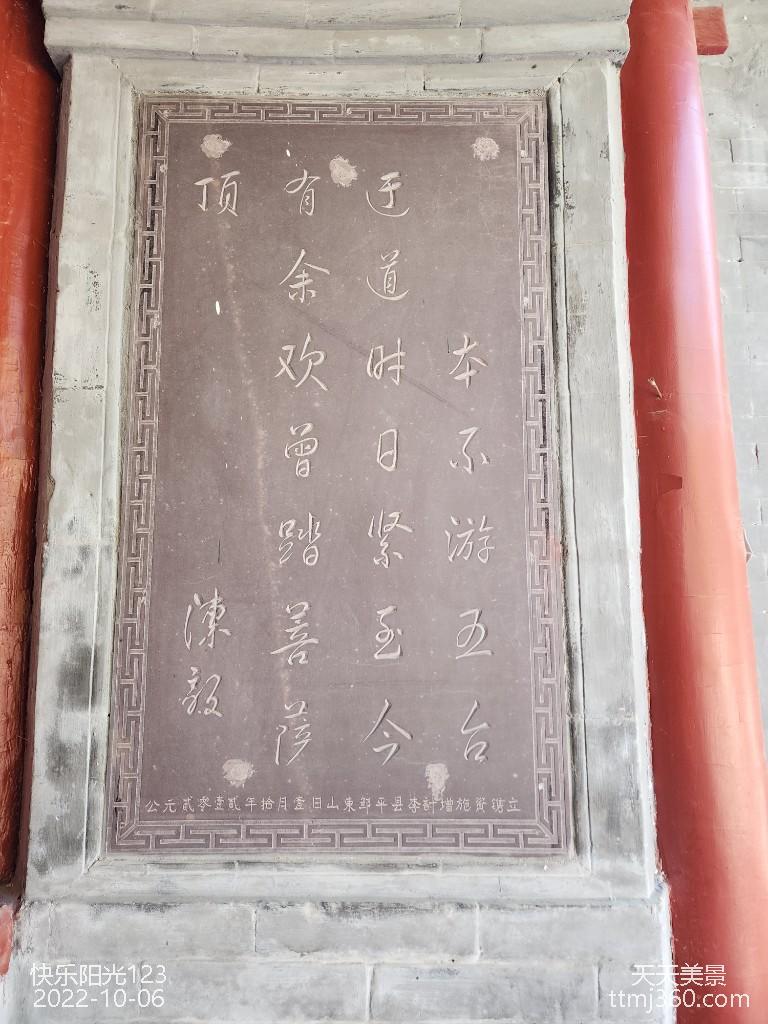 本不游五台
迂道时日紧至今
有余欢曾踏菩萨
顶
陳毅
公元貳零壹貳年拾月壹日山東邹平县李計增施资镌立
快乐阳光123
2022-10-06
天天美景
ttmj360.com